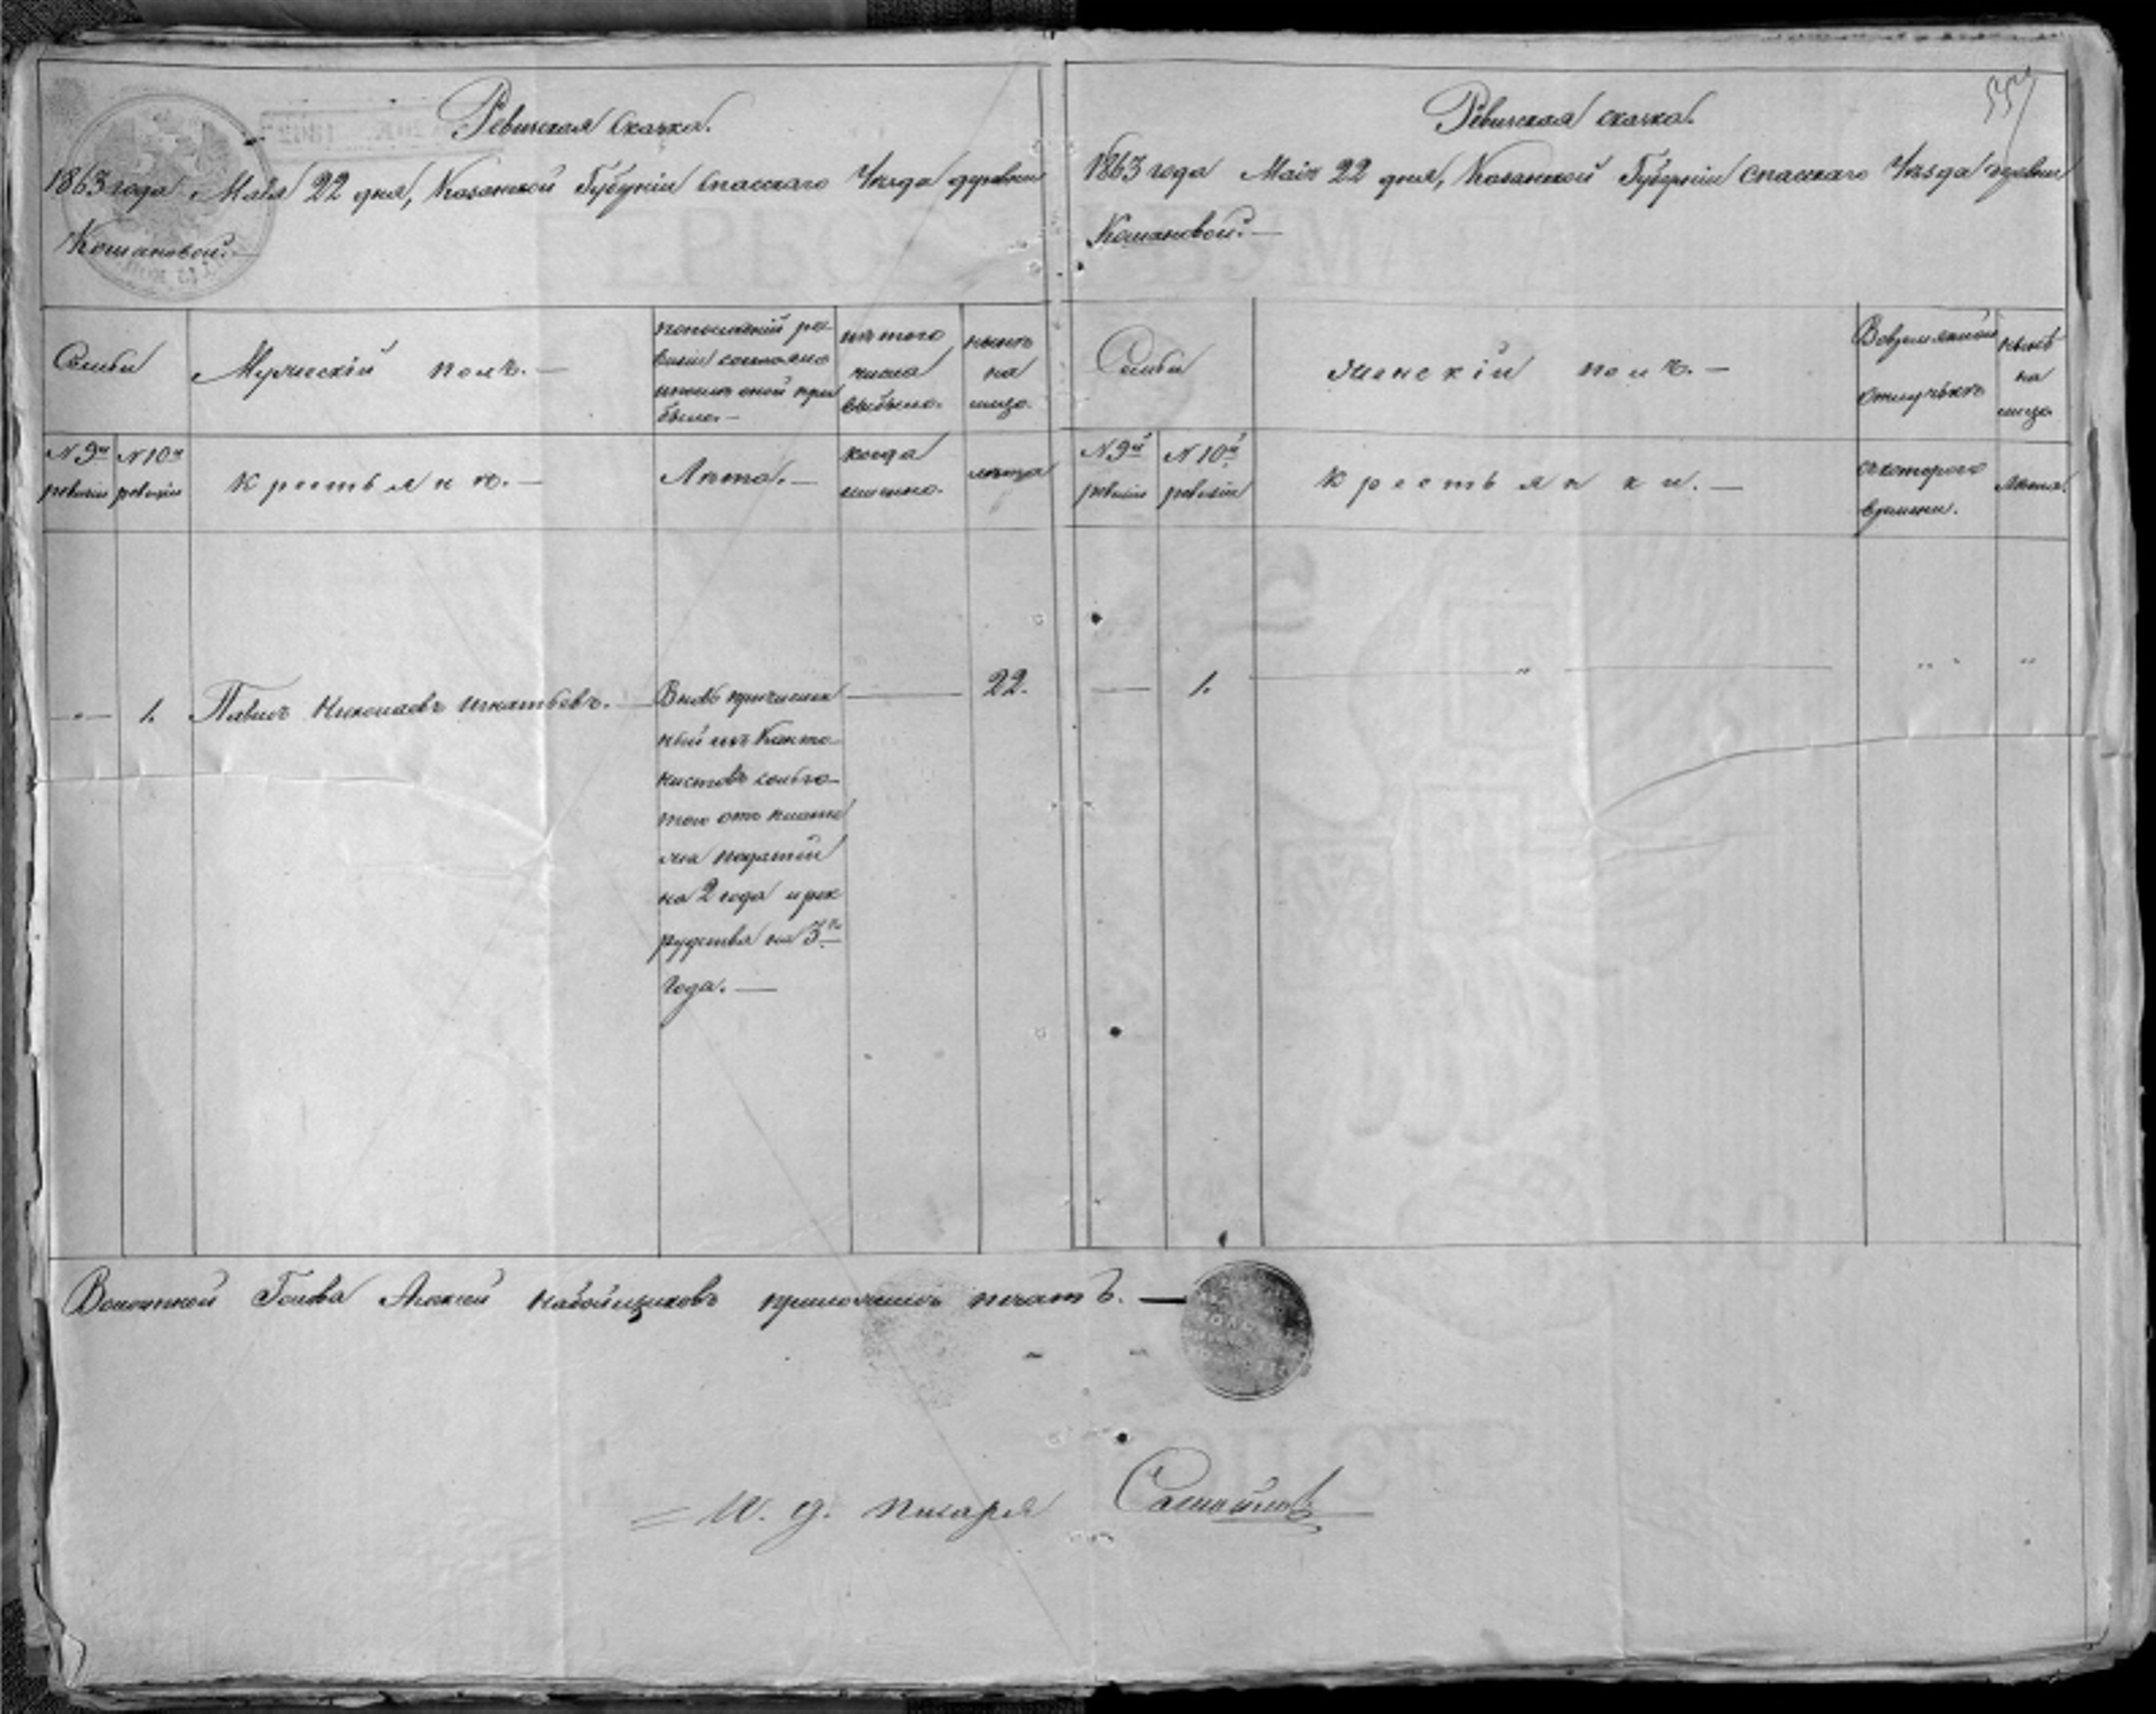 557
Ревизская сказка.
1863 года Маия 22 дня, Казанской Губерніи Спасскаго Уезда деревни
Кошановой.
Семьи
Мужескій полъ.
по последній ре-
визіи состояло
и после оной при
было.
изъ того
числа
выбыло.
ныне
на
лицо.
N 9й
ревизіи
N 10й
ревизіи
Крестьянъ.
Лета.
когда
именно.
лета
1.
Павелъ Николаевъ Игнатьевъ.
Вновь причислен
ный изъ Канто-
нистовъ сольго-
тою отъ плате
жа податей
на 2 года и рек
рудства на 3ри
года.
22.
Ревизская сказка.
1863 года Маія 22 дня, Казанской Губерніи Спасскаго Уезда деревни
Кошановой.
Семьи
Женскій полъ.
Во временной
отлучкѣ
нынѣ
на
лицо.
N 9й
ревизіи
N 10й
ревизіи
Крестьянки.
съ котораго
времени.
Лета.
1.
Волостной Голова Алексей Набойщиковъ приложилъ печать.
И. д. писаря Самойловъ